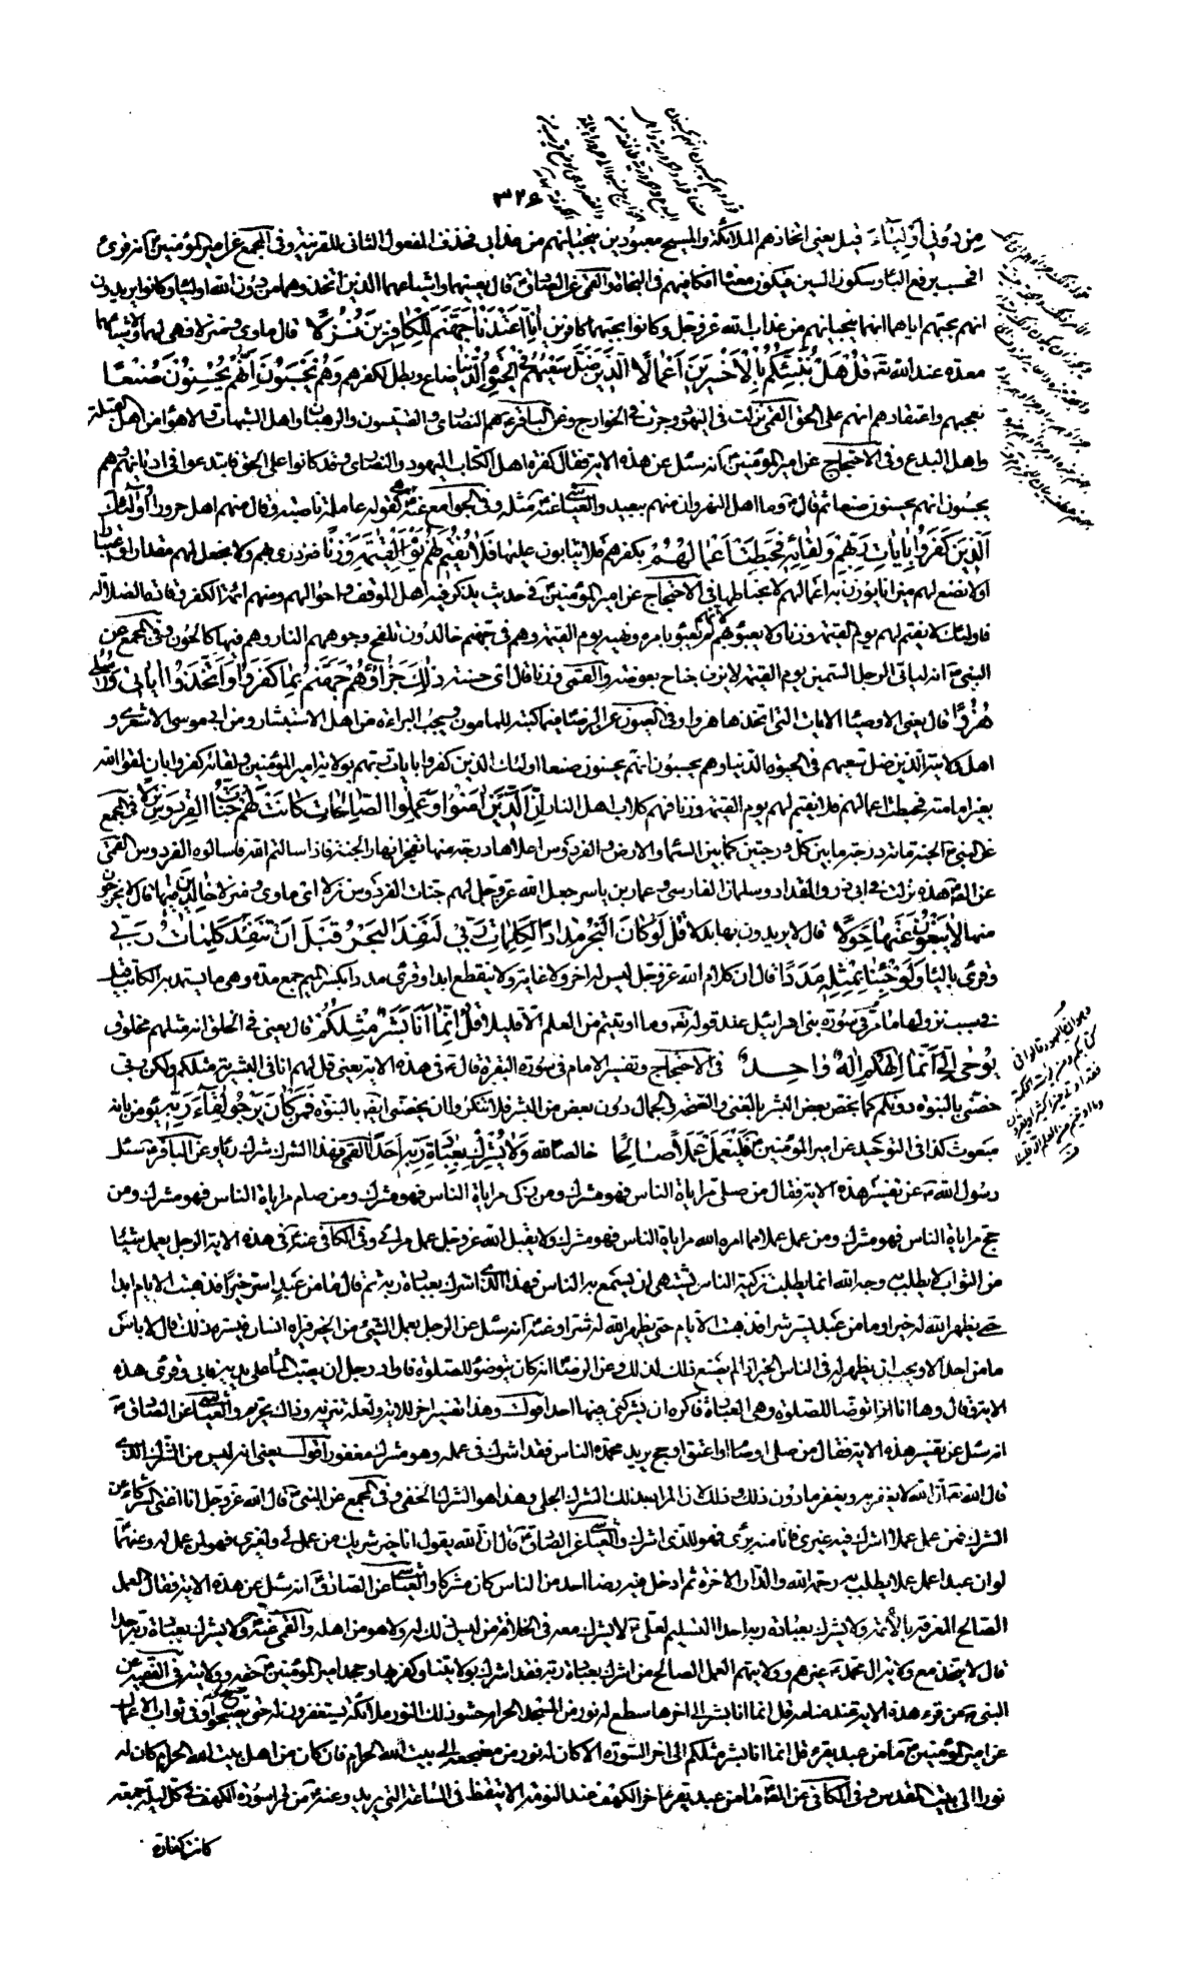 ٣٢٤
مِن دُونِي أَوْلِيَاءَ قيل يعني اتخاذهم الملائكة والمسيح معبودين ينجيانهم من عذابي فحذف المفعول الثاني للقرينة وفي المجمع عن امير المؤمنين انه قرئ
افحسب برفع الباء وسكون السين فيكون معناه افكافيهم في النجاة والقمي عن الصادق قال يعنيهما واشياعهما الذين اتخذوهما من دون الله اولياء وكانوا يرون
انهم بحبهم اياهما انهما ينجيانهم من عذاب الله عز وجل وكانوا بحبهما كافرين إِنَّا أَعْتَدْنَا جَهَنَّمَ لِلْكَافِرِينَ نُزُلًا قال ماوى ومنزلا فهي لهما ولاشياعهما
معدة عند الله تع قُلْ هَلْ نُنَبِّئُكُمْ بِالْأَخْسَرِينَ أَعْمَالًا الَّذِينَ ضَلَّ سَعْيُهُمْ فِي الْحَيٰوةِ الدُّنْيَا ضاع وبطل لكفرهم وَهُمْ يَحْسَبُونَ أَنَّهُمْ يُحْسِنُونَ صُنْعًا
بعجبهم واعتقادهم انهم على الحق القمي نزلت في اليهود وجرت في الخوارج وعن الباقر ع هم النصارى والقسيسون والرهبان واهل الشبهات والاهواء من اهل القبلة
واهل البدع وفي الاحتجاج عن امير المؤمنين انه سئل عن هذه الاية فقال كفرة اهل الكتاب اليهود والنصارى وقد كانوا على الحق فابتدعوا في اديانهم وهم
يحسبون انهم يحسنون صنعا ثم قال وما اهل النهروان منهم ببعيد والعياشي عنه مثله وفي الجوامع عنه هي كقوله عاملة ناصبة وقال منهم اهل حروراء أُولٰئِكَ
الَّذِينَ كَفَرُوا بِآيَاتِ رَبِّهِمْ وَلِقَائِهِ فَحَبِطَتْ أَعْمَالُهُمْ بكفرهم فلا يثابون عليها فَلَا نُقِيمُ لَهُمْ يَوْمَ الْقِيٰمَةِ وَزْنًا فنزدري بهم ولا نجعل لهم مقدارا واعتبارا
او لا نضع لهم ميزانا يوزن به اعمالهم لانحباطها في الاحتجاج عن امير المؤمنين في حديث يذكر فيه اهل الموقف واحوالهم ومنهم ائمة الكفر وقادة الضلالة
فاولئك لا نقيم لهم يوم القيمة وزنا ولا يعبؤ بهم لانهم لم يعبؤا بامره ونهيه يوم القيمة وهم في جهنم خالدون تلفح وجوههم النار وهم فيها كالحون وفي المجمع عن
النبي ص انه لياتي الرجل السمين يوم القيمة لا يزن جناح بعوضة والقمي وزنا قال اي حسنة ذٰلِكَ جَزَاؤُهُمْ جَهَنَّمُ بِمَا كَفَرُوا وَاتَّخَذُوا آيَاتِي وَرُسُلِي
هُزُوًا قال يعني الاوصياء الايات التي اتخذها هزوا وفي العيون عن الرضا فيما كتبه للمامون ويجب البراءة من اهل الاستيشار ومن ابي موسى الاشعري و
اهل ولايته الذين ضل سعيهم في الحيوة الدنيا وهم يحسبون انهم يحسنون صنعا اولئك الذين كفروا بايات ربهم بولاية امير المؤمنين ولقائه كفروا بان لقوا الله
بغير امامته فحبطت اعمالهم فلا نقيم لهم يوم القيمة وزنا فهم كلاب اهل النار إِنَّ الَّذِينَ آمَنُوا وَعَمِلُوا الصَّالِحَاتِ كَانَتْ لَهُمْ جَنَّاتُ الْفِرْدَوْسِ نُزُلًا في المجمع
عن النبي ص الجنة مائة درجة ما بين كل درجتين كما بين السماء والارض والفردوس اعلاها درجة منها تفجر انهار الجنة فاذا سالتم الله فاسالوه الفردوس القمي
عن الصادق هذه نزلت في ابي ذر والمقداد وسلمان الفارسي وعمار بن ياسر جعل الله عز وجل لهم جنات الفردوس نزلا اي ماوى ومنزلا خَالِدِينَ فِيهَا قال لا يخرجون
منها لَا يَبْغُونَ عَنْهَا حِوَلًا قال لا يريدون بها بدلا قُلْ لَوْ كَانَ الْبَحْرُ مِدَادًا لِكَلِمَاتِ رَبِّي لَنَفِدَ الْبَحْرُ قَبْلَ أَنْ تَنْفَدَ كَلِمَاتُ رَبِّي
وقرئ بالياء وَلَوْ جِئْنَا بِمِثْلِهِ مَدَدًا قال ان كلام الله عز وجل ليس له اخر ولا غاية ولا ينقطع ابدا وقرئ مددا بكسر الميم جمع مدة وهي ما يستمد به الكاتب قيل
سبب نزولها ما مر في سورة بني اسرائيل عند قوله تع وما اوتيتم من العلم الا قليلا قُلْ إِنَّمَا أَنَا بَشَرٌ مِثْلُكُمْ قال يعني في الخلق انه مثلهم مخلوق
يُوحَى إِلَيَّ أَنَّمَا إِلٰهُكُمْ إِلٰهٌ وَاحِدٌ في الاحتجاج وتفسير الامام في سورة البقرة قال في هذه الاية يعني قل لهم انا في البشرية مثلكم ولكن ربي
خصني بالنبوة دونكم كما يخص بعض البشر بالغنى والصحة والجمال دون بعض من البشر فلا تنكروا ان يخصني ايضا بالنبوة فَمَنْ كَانَ يَرْجُو لِقَاءَ رَبِّهِ يؤمن بانه
مبعوث كذا في التوحيد عن امير المؤمنين فَلْيَعْمَلْ عَمَلًا صَالِحًا خالصا لله وَلَا يُشْرِكْ بِعِبَادَةِ رَبِّهِ أَحَدًا القمي فهذا الشرك شرك رياء وعن الباقر سئل
رسول الله ص عن تفسير هذه الاية فقال من صلى مراياة الناس فهو مشرك ومن زكى مراياة الناس فهو مشرك ومن صام مراياة الناس فهو مشرك ومن
حج مراياة الناس فهو مشرك ومن عمل عملا مما امره الله مراياة الناس فهو مشرك ولا يقبل الله عز وجل عمل مراء وفي الكافي عنه في هذه الاية الرجل يعمل شيئا
من الثواب لا يطلب به وجه الله انما يطلب تزكية الناس يشتهي ان يسمع به الناس فهذا الذي اشرك بعبادة ربه ثم قال ما من عبد اسر خيرا فذهبت الايام ابدا
حتى يظهر الله له خيرا وما من عبد يسر شرا فذهبت الايام حتى يظهر الله له شرا وعنه انه سئل عن الرجل يعمل الشيء من الخير فيراه انسان فيسره ذلك قال لا باس
ما من احد الا ويحب ان يظهر له في الناس الخير اذا لم يصنع ذلك لذلك وعن الرضا انه كان يتوضؤ للصلوة فاراد رجل ان يصب الماء على يديه فابى وقرئ هذه
الاية وقال وها انا اذا اتوضا للصلوة وهي العبادة فاكره ان يشركني فيها احد اقول وهذا تفسير اخر للاية ولعله تنزيه وذاك تحريم والعياشي عن الصادق
انه سئل عن تفسير هذه الاية فقال من صلى او صام او اعتق او حج يريد محمدة الناس فقد اشرك في عمله وهو مشرك مغفور اقول يعني انه ليس من الشرك الذي
قال الله تع ان الله لا يغفر ان يشرك به ويغفر ما دون ذلك وذلك لان المراد بذلك الشرك الجلي وهذا هو الشرك الخفي وفي المجمع عن النبي ص قال الله عز وجل انا اغنى الشركاء عن
الشرك فمن عمل عملا اشرك فيه غيري فانا منه بري فهو للذي اشرك والعياشي عن الصادق قال ان الله يقول انا خير شريك من عمل لي ولغيري فهو لمن عمل له وعنهما
لو ان عبدا عمل عملا يطلب به رحمة الله والدار الاخرة ثم ادخل فيه رضا احد من الناس كان مشركا والعياشي عن الصادق انه سئل عن هذه الاية فقال العمل
الصالح المعرفة بالائمة ولا يشرك بعبادة ربه احدا التسليم لعلي لا يشرك معه في الخلافة من ليس ذلك له ولا هو من اهله والقمي عنه ولا يشرك بعبادة ربه احدا
قال لا يتخذ مع ولاية ال محمد غيرهم وولايتهم العمل الصالح من اشرك بعبادة ربه فقد اشرك بولايتنا وكفر بها وجحد امير المؤمنين حقه وولايته في الفقيه عن
النبي ص من قرء هذه الاية عند منامه قل انما انا بشر الى اخرها سطع له نور من المسجد الحرام حشو ذلك النور ملائكة يستغفرون له حتى يصبح وفي ثواب الاعمال
عن امير المؤمنين ما من عبد يقرء قل انما انا بشر مثلكم الى اخر السورة الا كان له نور من مضجعه الى بيت الله الحرام فان كان من اهل بيت الله الحرام كان له
نورا الى بيت المقدس وفي الكافي عن الصادق ما من عبد يقرء اخر الكهف عند النوم الا تيقظ في الساعة التي يريد وعنه من قرأ سورة الكهف في كل ليلة جمعة
كانت كفارة